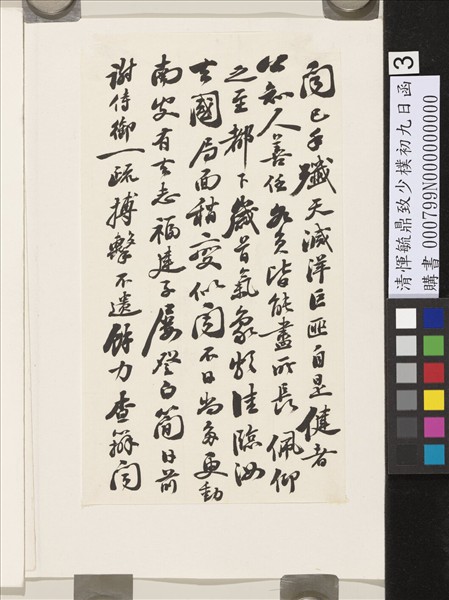 聞已手殲天滅洋巨匪自是健者
公知人善任皆能盡所長佩仰
之至都下歲首氣象頗佳臨汝
去國局面稍變似聞不日尚更動
南皮有去志福建子屢登白簡日前
謝侍御一疏搏擊不遺餘力查辦聞
3
清惲毓鼎致少樸初九日函
購書 000799N000000000000